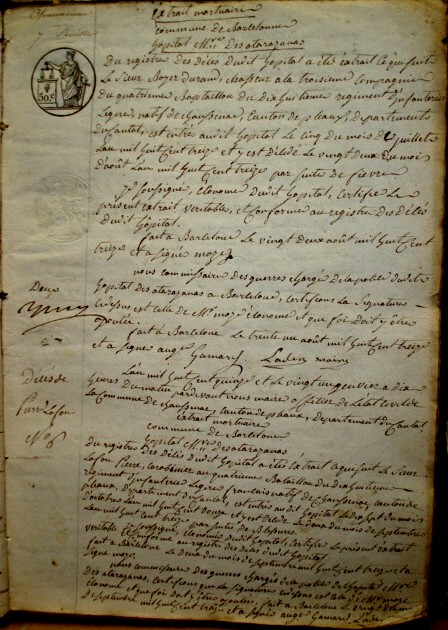 extrait mortuaire
commune de Barcelonne
hopital M.re Desatarazanas
Du registre des délés dudit hopital a été extrait ce qui suit
Le Sieur Boyer durand, chasseur a la troisieme compagnie
du quatrieme Bataillon du dix huitieme regiment d'infanterie
Ligere, natif de chaussenac, canton de pleaux, departement
du cantal, est entrés audit hopital Le cinq du mois de juillet
L'an mil huit cent treize et y est délédé Le vingt deux du mois
d'août L'an mil huit cent treize par suites de fievre
Je soussigné, économe dudit hopital, certifie Le
présent extrait veritable, et conforme au registre des délés
dudit hôpital.
fait a Barcelone Le vingt deux août mil huit cent
treize et a signés moze
nous commissaire des guerres chargé de la police dudit
hopital des atarazanas a Barcelone, certifions La Signature
ci dessus est celle de M.r moze économe et que foi doit y être
ajoutée.
fait à Barcelone Le trente un août mil huit cent treize
et a signé Gamard,
50c
Deux
décès de
Lafon
N.o 6
L'an mil huit cent quinze et Le vingt un janvier a dix
heures du matin pardevant nous maire officier de L'etat civil de
La commune de chaussenac, canton de pleaux, departement du cantal
extrait mortuaire
commune de Barcelone
hopital M.re desatarazanas
du registre des délés dudit hopital a été extrait ce qui suit Le Sieur
Lafon Pierre, carabinier au quatrieme Bataillon du dix huitieme
regiment d'infanterie Ligere français natif de chaussenac, canton de
pleaux, departement du cantal, est entrés audit hopital Le dix sept du mois
d'octobre L'an mil huit cent douze et y est délédé Le deux du mois de septembre
L'an mil huit cent treize par suites de Blessures.
Je soussigné, économe dudit hopital, certifie Le present extrait
veritable et conforme au registre des délés dudit hopital
fait a Barcelone Le deux du mois de septembre mil huit cent treize et a
signé moze.
nous commissaire des guerres chargés de la police de L'hopital M.re
des atarazanas, certifions que La signature ci dessus est celle de M.r moze
économe et que foi doit y être ajoutée, fait a Barcelone Le
septembre mil huit cent treize et a signé Gamard,